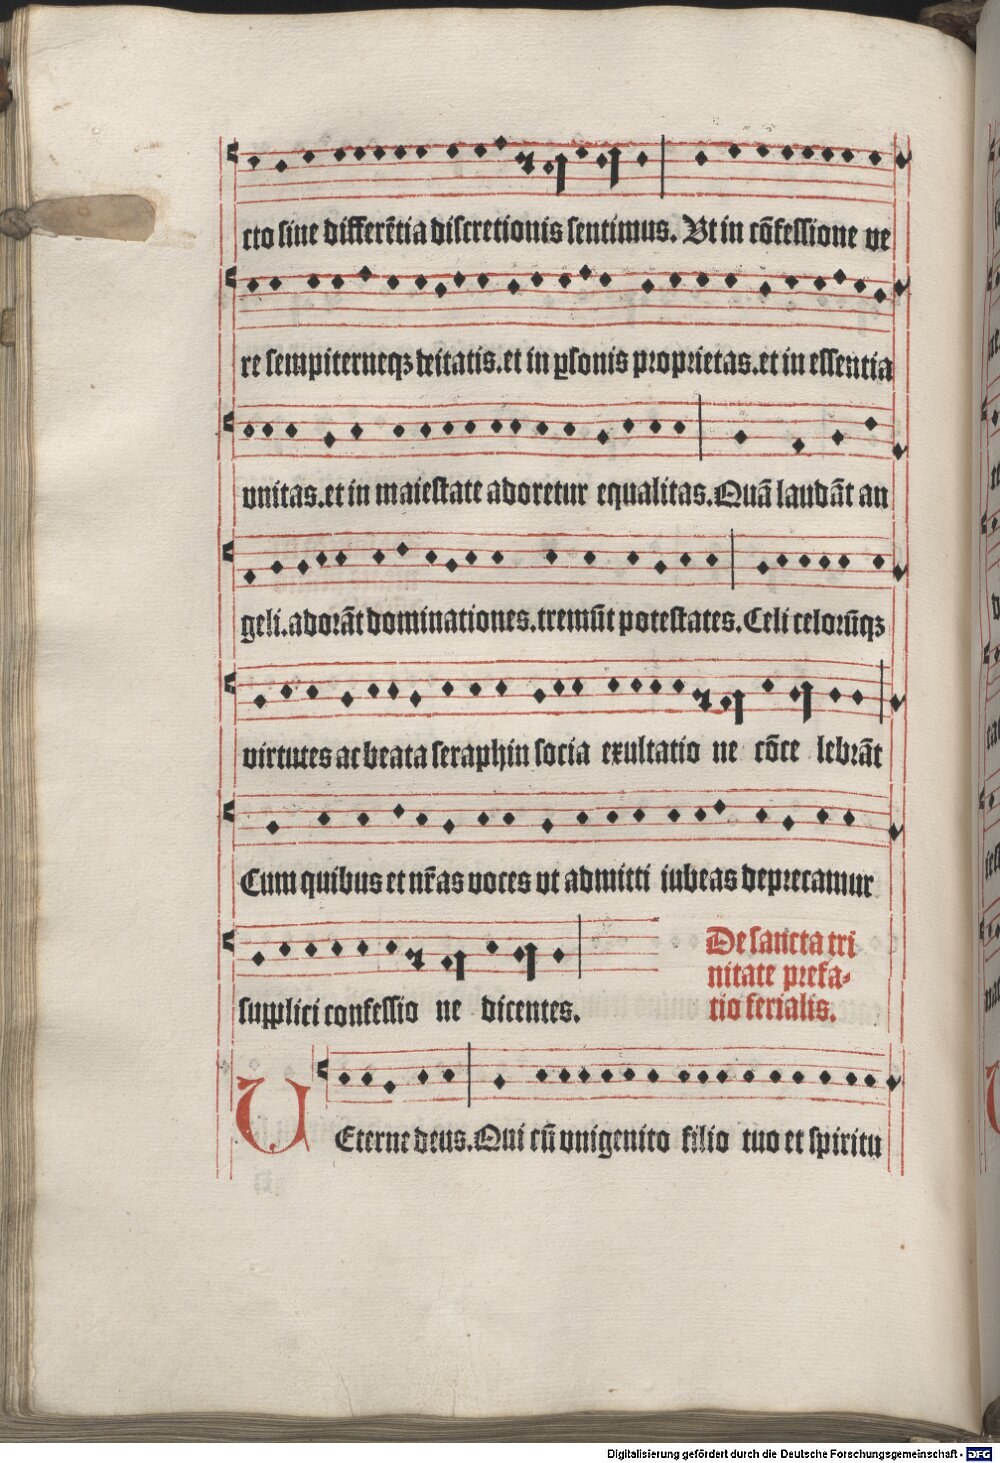 cto sine differētia discretionis sentimus. Vt in cōfessione ve
re sempiterneqꝫ deitatis.et in ꝑsonis proprietas.et in essentia
vnitas.et in maiestate adoretur equalitas.Quā laudāt an
geli.adorāt dominationes.tremūt potestates.Celi celorūqꝫ
virtutes ac beata seraphin socia exultatio ne cōce lebrāt
Cum quibus et nr̄as voces vt admitti iubeas deprecamur
supplici confessio ne dicentes.
De sancta tri
nitate prefa-
tio ferialis.
V Eterne deus.Qui cū vnigenito filio tuo et spiritu
Digitalisierung gefördert durch die Deutsche Forschungsgemeinschaft - DFG